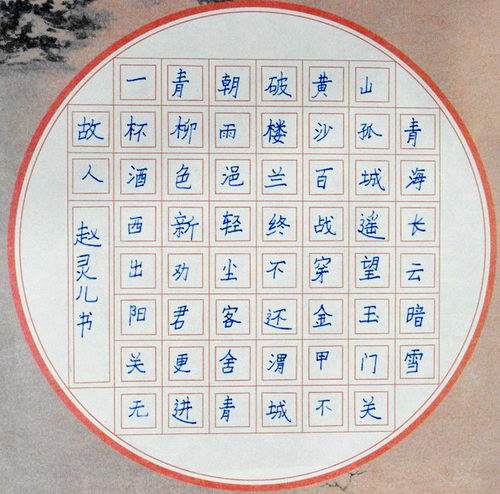 青海长云暗雪
山孤城遥望玉门关
黄沙百战穿金甲不
破楼兰终不还渭城
朝雨浥轻尘客舍青
青柳色新劝君更进
一杯酒西出阳关无
故人
赵灵儿书